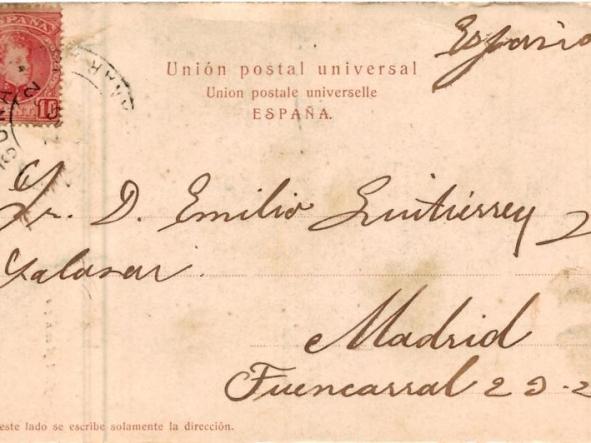 ESPAÑA
10
España
Unión postal universal
Union postale universelle
ESPAÑA.
Sr. D. Emilio Gutiérrez
Salasar.
Madrid
Fuencarral 29-2
este lado se escribe solamente la dirección.